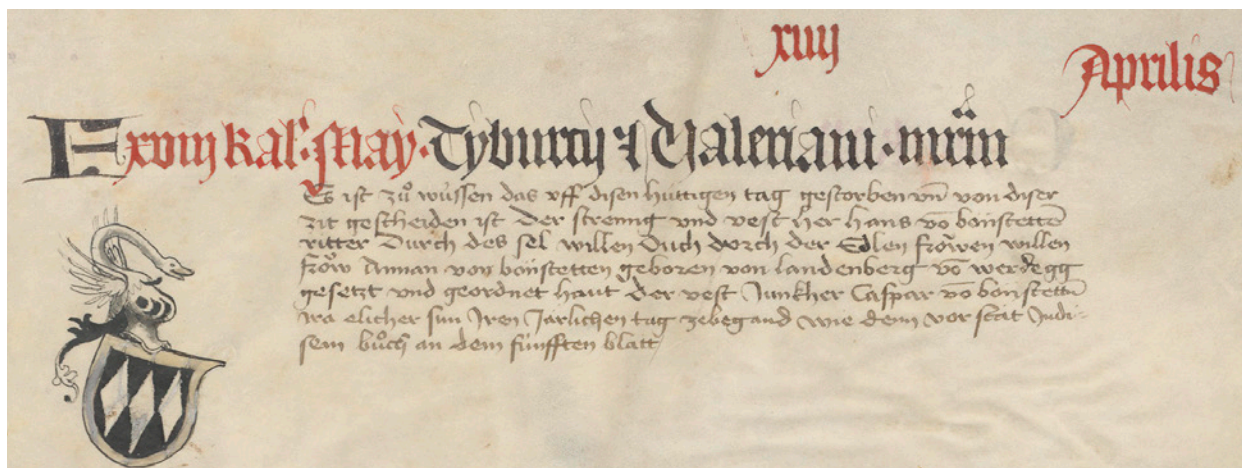 xiiij
Aprilis
F xviij kal' May · Tyburcij & Valeriani · mrm̃
Es ist zů wüssen das vff disen hüttigen tag gestorben vn̄ von diser
zit gescheiden ist Der streng vnd vest her hans vō bonstettē
ritter Durch des sel willen Ouch durch der Edlen fröwen willen
fröw Annan von bonstetten geboren von landenberg vō werdegg
gesetzt vnd geordnet haut Der vest Junkher Caspar vō bonstettē
ira elicher sun Jren Jarlichen tag zebegand wie denn vor stat Jndi-
sem bůch an dem fünfften blatt